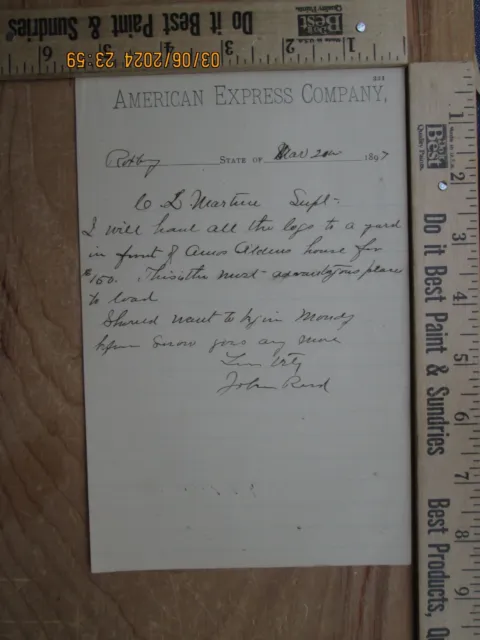 Do it Best Paint & Sundries
Do it Best
Quality Paints
Made in U.S.A.
6 5 4 3 2 1
03/06/2024 23:59
311
AMERICAN EXPRESS COMPANY,
Roxby STATE OF Mar 20 1897
C L Martine Supt-
I will haul all the logs to a yard
in front of Amos Aldens house for
$150. This is the most advantagous place
to load
Should want to begin Monday
before snow goes any more
Truly
John Reed
1
2
3
4
5
6
7
8
9
Do it Best
Quality Paints
Do it Best Paint & Sundries
Best Products,